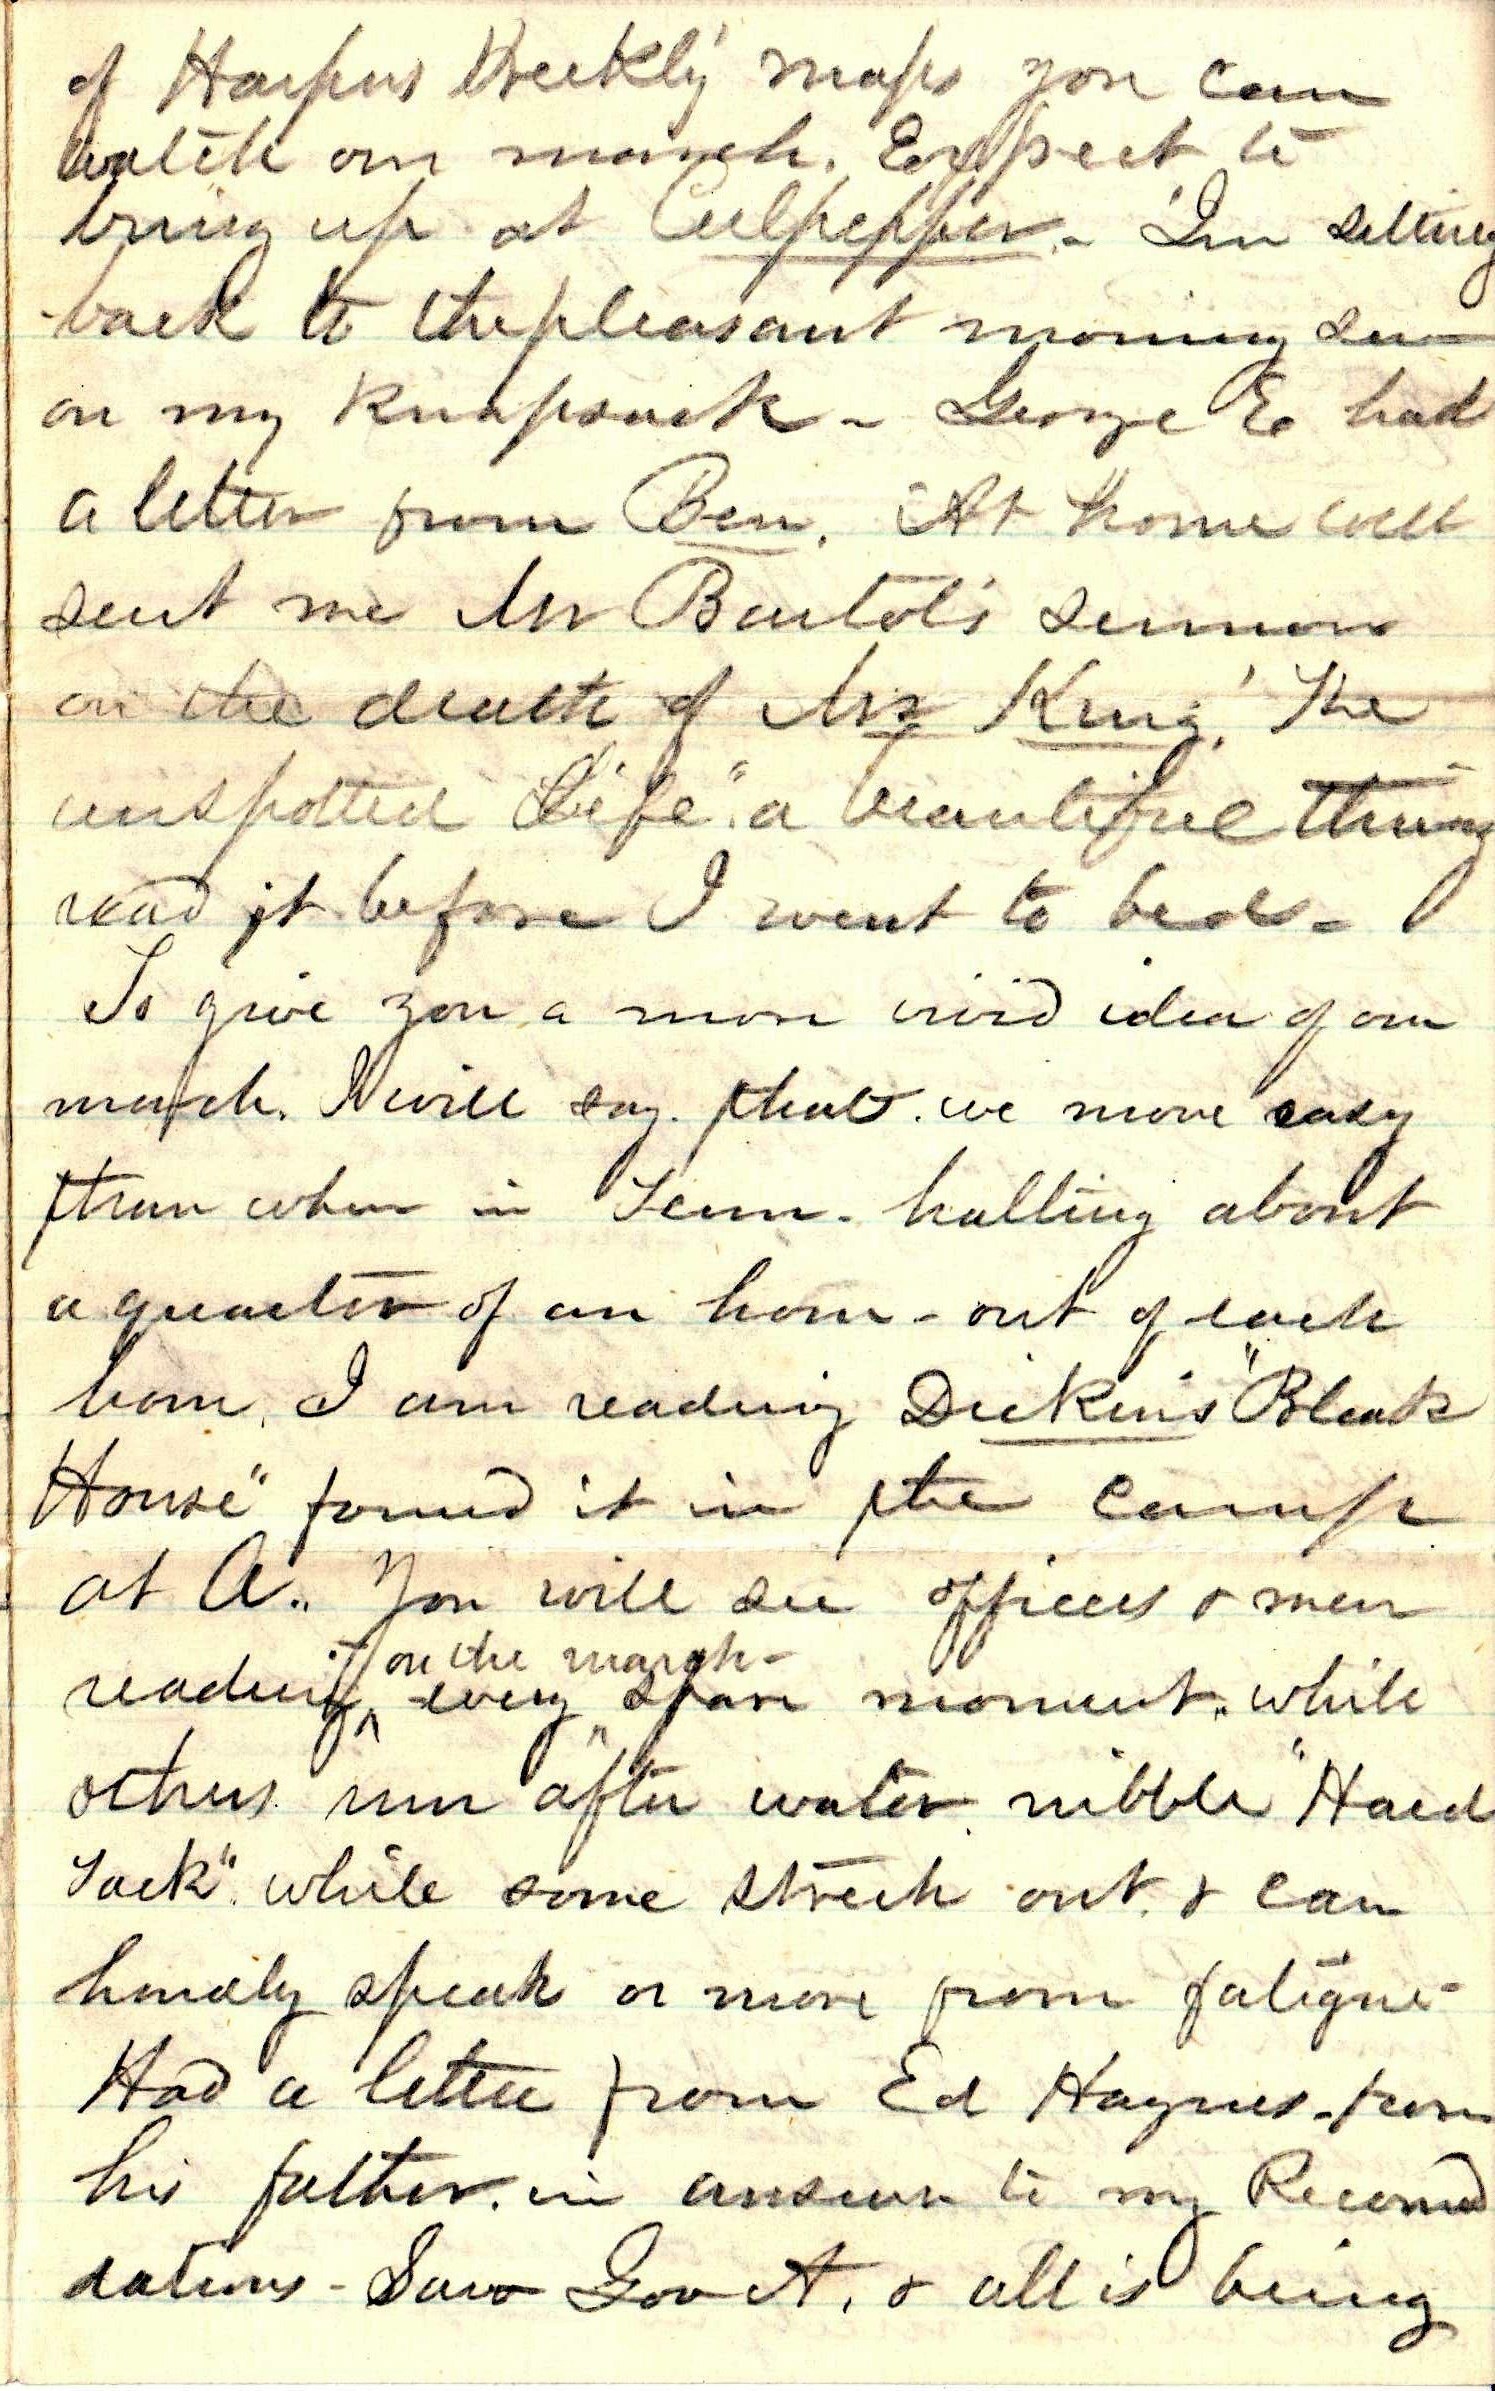 of Harpers Weekly maps you can
watch our march. Expect to
bring up at Culpepper. - I'm sitting
back to the pleasant morning sun
on my knapsack - George E had
a letter from Ben. At home well
sent me Mr Bartol's sermon
on the death of Mr King, "The
unspotted Life". a beautiful thing
read it before I went to bed. -
To give you a more vivid idea of our
march. I will say. that. we move easy
than when in Tenn. halting about
a quarter of an hour - out of each
hour, I am reading Dickins "Bleak
House" found it in the camp
at A.. You will see officers & men
reading it on the march - every spare moment. while
others run after water. nibble "Hard
Tack". while some strech out. & can
hardly speak or move from fatigue -
Had a letter from Ed Haynes - from
his father. in answer to my Recomd
dations - Saw Gov A. & all is being